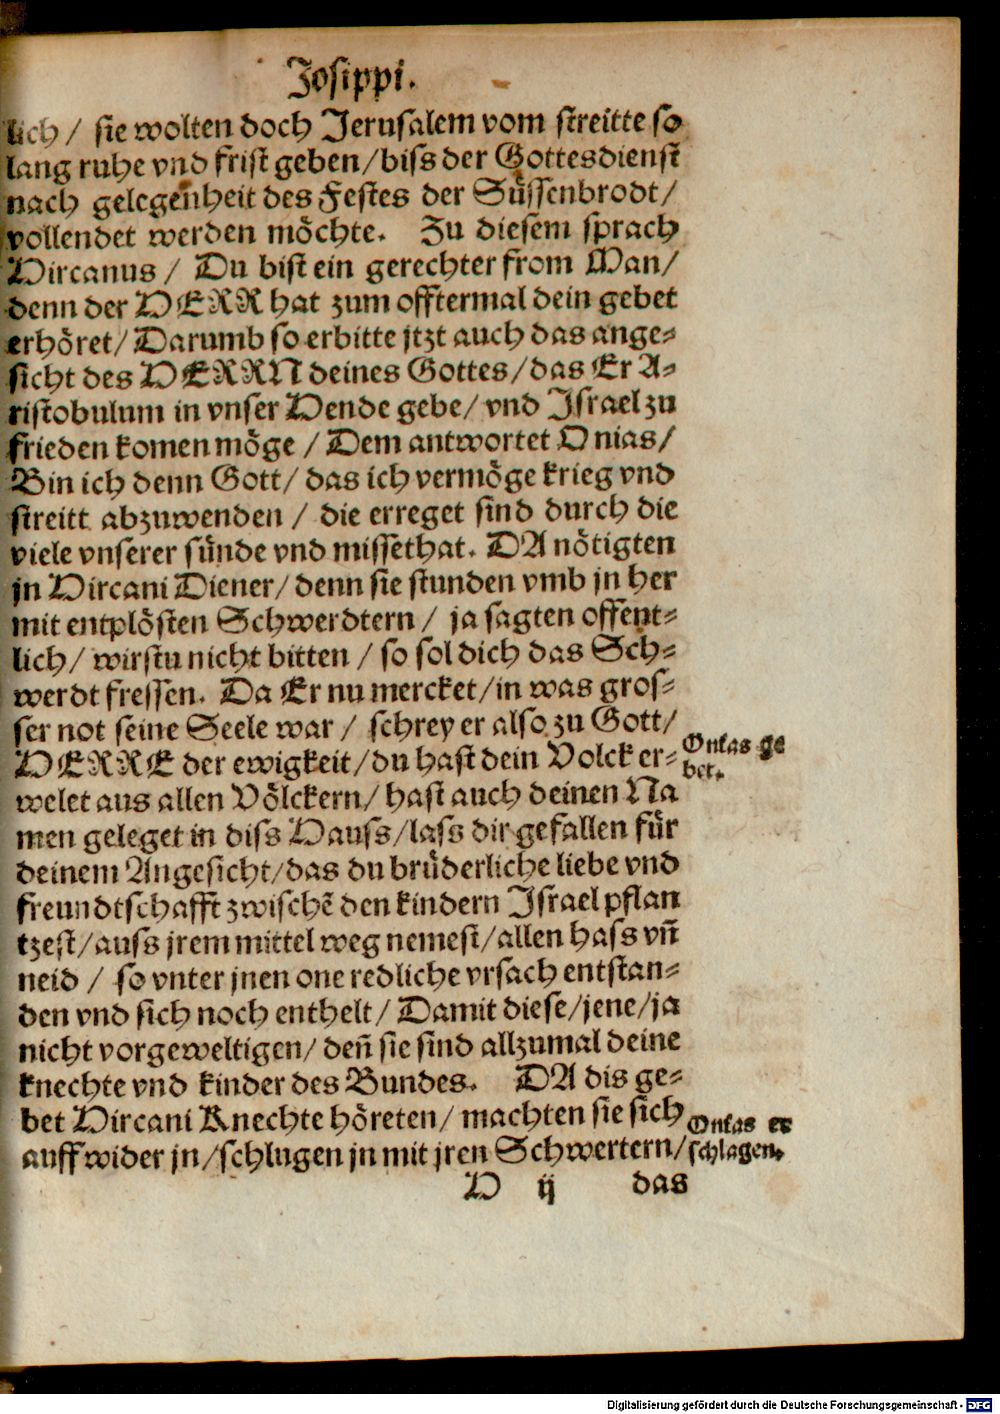 Josippi.
lich / sie wolten doch Jerusalem vom streitte so
lang ruhe vnd frist geben / biss der Gottesdienst
nach gelegenheit des Festes der Süssenbrodt /
vollendet werden möchte. Zu diesem sprach
Hircanus / Du bist ein gerechter from Man /
denn der HERR hat zum offtermal dein gebet
erhöret / Darumb so erbitte jtzt auch das ange-
sicht des HERRN deines Gottes / das Er A-
ristobulum in vnser Hende gebe / vnd Israel zu
frieden komen möge / Dem antwortet Onias /
Bin ich denn Gott / das ich vermöge krieg vnd
streitt abzuwenden / die erreget sind durch die
viele vnserer sünde vnd missethat. DA nötigten
jn Hircani Diener / denn sie stunden vmb jn her
mit entplösten Schwerdtern / ja sagten offent-
lich / wirstu nicht bitten / so sol dich das Sch-
werdt fressen. Da Er nu mercket / in was gros-
ser not seine Seele war / schrey er also zu Gott /
HERRE der ewigkeit / du hast dein Volck er-
welet aus allen Völckern / hast auch deinen Na
men geleget in diss Hauss / lass dir gefallen für
deinem Angesicht / das du brüderliche liebe vnd
freundtschafft zwischẽ den kindern Israel pflan
tzest / auss jrem mittel weg nemest / allen hass vñ
neid / so vnter jnen one redliche vrsach entstan-
den vnd sich noch enthelt / Damit diese / jene / ja
nicht vorgeweltigen / deñ sie sind allzumal deine
knechte vnd kinder des Bundes. DA dis ge-
bet Hircani Knechte höreten / machten sie sich
auff wider jn / schlugen jn mit jren Schwertern /
H ij das
Onias ge
bet.
Onias er
schlagen.
Digitalisierung gefördert durch die Deutsche Forschungsgemeinschaft - DFG